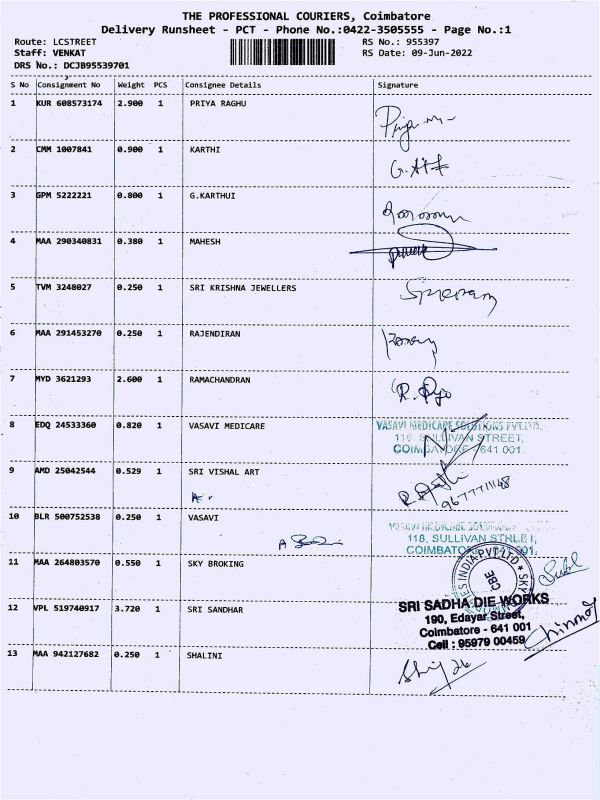 THE PROFESSIONAL COURIERS, Coimbatore
Delivery Runsheet - PCT - Phone No.:0422-3505555 - Page No.:1
Route: LCSTREET RS No.: 955397
Staff: VENKAT RS Date: 09-Jun-2022
DRS No.: DCJB95539701
S No Consignment No Weight PCS Consignee Details Signature
1 KUR 608573174 2.900 1 PRIYA RAGHU
2 CMM 1007841 0.900 1 KARTHI
3 GPM 5222221 0.800 1 G.KARTHUI
4 MAA 290340831 0.380 1 MAHESH
5 TVM 3248027 0.250 1 SRI KRISHNA JEWELLERS
6 MAA 291453270 0.250 1 RAJENDIRAN
7 MYD 3621293 2.600 1 RAMACHANDRAN
8 EDQ 24533360 0.820 1 VASAVI MEDICARE VASAVI MEDICARE SOLUTIONS PVT.LTD.
118, SULLIVAN STREET,
COIMBATORE - 641 001.
9 AMD 25042544 0.529 1 SRI VISHAL ART
9677771148
10 BLR 500752538 0.250 1 VASAVI VASAVI MEDICARE
118, SULLIVAN STREET,
COIMBATORE 001.
11 MAA 264803570 0.550 1 SKY BROKING
INDIA PVT LTD SKY
CBE
12 VPL 519740917 3.720 1 SRI SANDHAR SRI SADHA DIE WORKS
190, Edayar Street,
Coimbatore - 641 001
Cell : 95979 00459
13 MAA 942127682 0.250 1 SHALINI